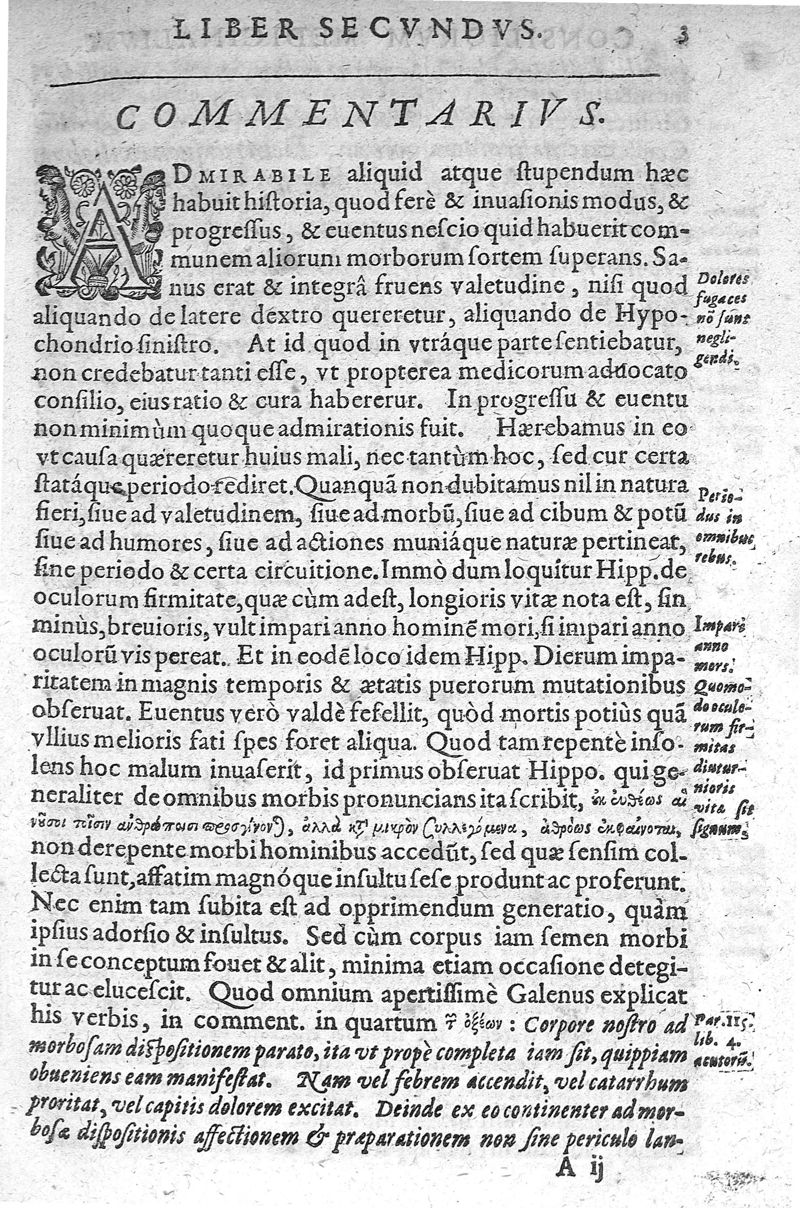 LIBER SECVNDVS. 3
COMMENTARIVS.
ADMIRABILE aliquid atque ſtupendum hæc
habuit hiſtoria, quod ferè & inuaſionis modus, &
progreſſus, & euentus neſcio quid habuerit com-
munem aliorum morborum ſortem ſuperans. Sa-
nus erat & integrâ fruens valetudine, niſi quod
aliquando de latere dextro quereretur, aliquando de Hypo-
chondrio ſiniſtro. At id quod in vtráque parte ſentiebatur,
non credebatur tanti eſſe, vt propterea medicorum aduocato
conſilio, eius ratio & cura habererur. In progreſſu & euentu
non minimùm quoque admirationis fuit. Hærebamus in eo
vt cauſa quæreretur huius mali, nec tantùm hoc, ſed cur certa
ſtatáque periodo rediret. Quanquã non dubitamus nil in natura
fieri, ſiue ad valetudinem, ſiue ad morbũ, ſiue ad cibum & potũ
ſiue ad humores, ſiue ad actiones muniáque naturæ pertineat,
ſine periodo & certa circuitione. Immò dum loquitur Hipp. de
oculorum firmitate, quæ cùm adeſt, longioris vitæ nota eſt, ſin
minùs, breuioris, vult impari anno hominẽ mori, ſi impari anno
oculorũ vis pereat. Et in eodẽ loco idem Hipp. Dierum impa-
ritatem in magnis temporis & ætatis puerorum mutationibus
obſeruat. Euentus verò valdè fefellit, quòd mortis potiùs quã
vllius melioris fati ſpes foret aliqua. Quod tam repentè inſo-
lens hoc malum inuaſerit, id primus obſeruat Hippo. qui ge-
neraliter de omnibus morbis pronuncians ita ſcribit, ἐκ εὐθέως αἱ
νοῦσοι τοῖσιν ἀνθρώποισι προσγίνον), ἀλλὰ κτ' μικρὸν συλλεγόμεναι, ἀθρόως ἐκφαίνονται,
non derepente morbi hominibus accedũt, ſed quæ ſenſim col-
lecta ſunt, affatim magnóque inſultu ſeſe produnt ac proferunt.
Nec enim tam ſubita eſt ad opprimendum generatio, quàm
ipſius adorſio & inſultus. Sed cùm corpus iam ſemen morbi
in ſe conceptum fouet & alit, minima etiam occaſione detegi-
tur ac eluceſcit. Quod omnium apertiſſimè Galenus explicat
his verbis, in comment. in quartum τ͂ ὀξέων : Corpore noſtro ad
morboſam diſpoſitionem parato, ita vt propè completa iam ſit, quippiam
obueniens eam manifeſtat. Nam vel febrem accendit, vel catarrhum
proritat, vel capitis dolorem excitat. Deinde ex eo continenter ad mor-
boſæ diſpoſitionis affectionem & præparationem non ſine periculo lan-
A ij
Dolores
fugaces
nõ ſunt
negli-
gendi.
Perio-
dus in
omnibus
rebus.
Impare
anno
mors.
Quomo-
do oculo-
rum fir-
mitas
diutur-
nioris
vita ſit
ſignum.
Par. 115.
lib. 4.
acutorũ.